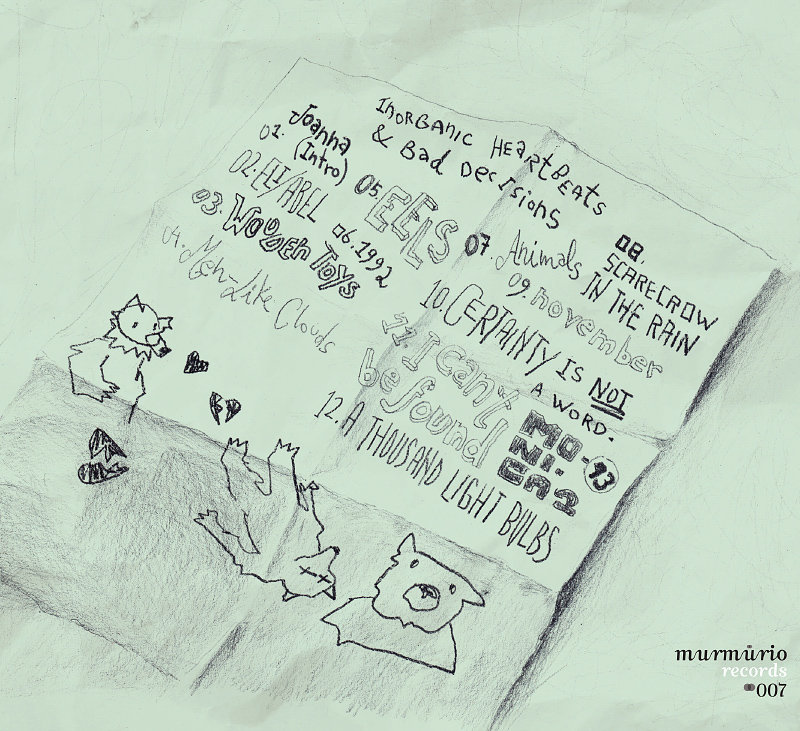 INORGANIC HEARTBEATS
& BAD DECISIONS
01. Joanna
(Intro)
02. ELI/ABEL
03. Wooden Toys
04. Men-Like Clouds
05. EELS
06. 1992
07. Animals
08. SCARECROW
IN THE RAIN
09. november
10. CERTAINTY IS NOT
A WORD.
11. I can't
be found
12. A THOUSAND LIGHT BULBS
MO-
NI-
CA1
13
murmúrio
records
007